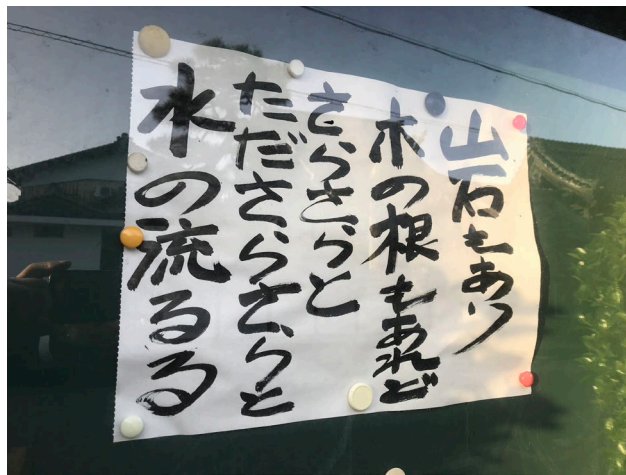 岩もあり
木の根もあれど
さらさらと
たださらさらと
水の流るる